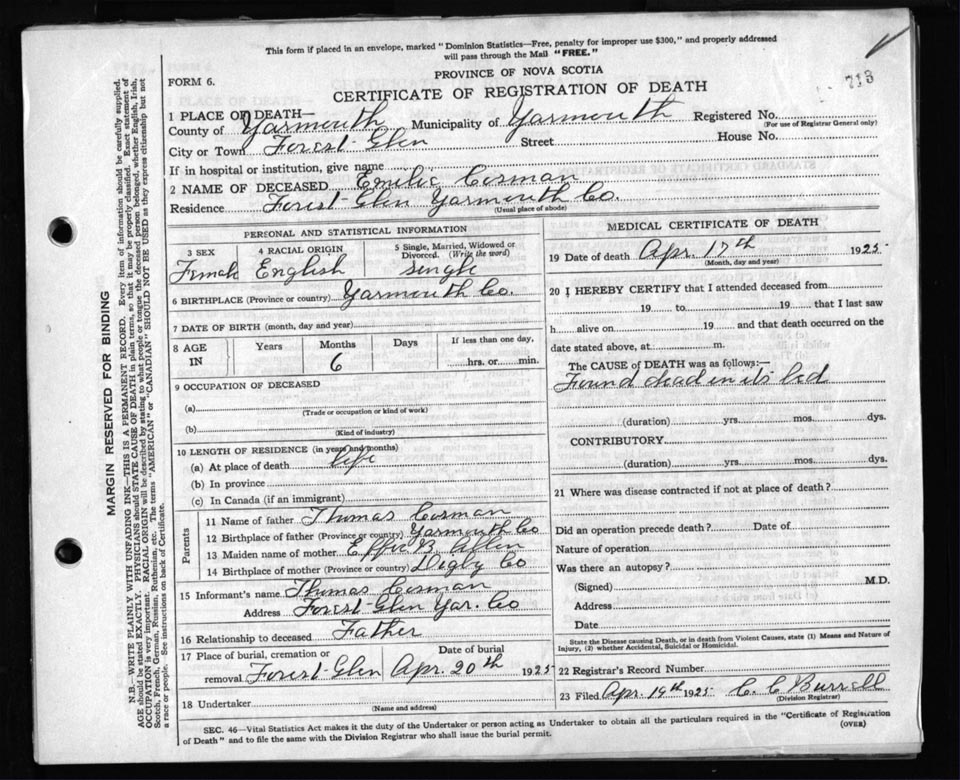 This form if placed in an envelope, marked "Dominion Statistics—Free, penalty for improper use $300," and properly addressed
will pass through the Mail "FREE."
713
FORM 6.
PROVINCE OF NOVA SCOTIA
CERTIFICATE OF REGISTRATION OF DEATH
1 PLACE OF DEATH—
County of Yarmouth Municipality of Yarmouth Registered No.
(For use of Registrar General only)
City or Town Forest Glen Street House No.
If in hospital or institution, give name
2 NAME OF DECEASED Emilie Cosman
Residence Forest Glen Yarmouth Co.
(Usual place of abode)
PERSONAL AND STATISTICAL INFORMATION
3 SEX 4 RACIAL ORIGIN 5 Single, Married, Widowed or Divorced. (Write the word)
Female English single
6 BIRTHPLACE (Province or country) Yarmouth Co.
7 DATE OF BIRTH (month, day and year)
8 AGE IN Years Months Days If less than one day,
6 hrs. or min.
9 OCCUPATION OF DECEASED
(a)
(Trade or occupation or kind of work)
(b)
(Kind of industry)
10 LENGTH OF RESIDENCE (in years and months)
(a) At place of death life
(b) In province
(c) In Canada (if an immigrant)
Parents
11 Name of father Thomas Cosman
12 Birthplace of father (Province or country) Yarmouth Co
13 Maiden name of mother Effie B Allen
14 Birthplace of mother (Province or country) Digby Co
15 Informant's name Thomas Cosman
Address Forest Glen Yar. Co
16 Relationship to deceased Father
17 Place of burial, cremation or removal Date of burial
Forest Glen Apr. 20th 1925
18 Undertaker
(Name and address)
MEDICAL CERTIFICATE OF DEATH
19 Date of death Apr. 17th 1925
(Month, day and year)
20 I HEREBY CERTIFY that I attended deceased from
19 to 19 that I last saw
h alive on 19 and that death occurred on the
date stated above, at m.
The CAUSE OF DEATH was as follows:—
Found dead in its bed
(duration) yrs. mos. dys.
CONTRIBUTORY
(duration) yrs. mos. dys.
21 Where was disease contracted if not at place of death?
Did an operation precede death? Date of
Nature of operation
Was there an autopsy?
(Signed) M.D.
Address
Date
State the Disease causing Death, or in death from Violent Causes, state (1) Means and Nature of
Injury, (2) whether Accidental, Suicidal or Homicidal.
22 Registrar's Record Number
23 Filed Apr. 19th 1925 C. C Burrell
(Division Registrar)
SEC. 46—Vital Statistics Act makes it the duty of the Undertaker or person acting as Undertaker to obtain all the particulars required in the "Certificate of Registration
of Death" and to file the same with the Division Registrar who shall issue the burial permit.
(OVER)
MARGIN RESERVED FOR BINDING
N.B.—WRITE PLAINLY WITH UNFADING INK—THIS IS A PERMANENT RECORD. Every item of information should be carefully supplied.
AGE should be stated EXACTLY. PHYSICIANS should STATE CAUSE OF DEATH in plain terms, so that it may be properly classified. Exact statement of
OCCUPATION is very important. RACIAL ORIGIN will be described by stating to what people or tongue the deceased person belonged, whether English, Irish,
Scotch, French, German, Russian, Ruthenian, etc. The terms "AMERICAN" or "CANADIAN" SHOULD NOT BE USED as they express citizenship but not
a race or people. See instructions on back of Certificate.